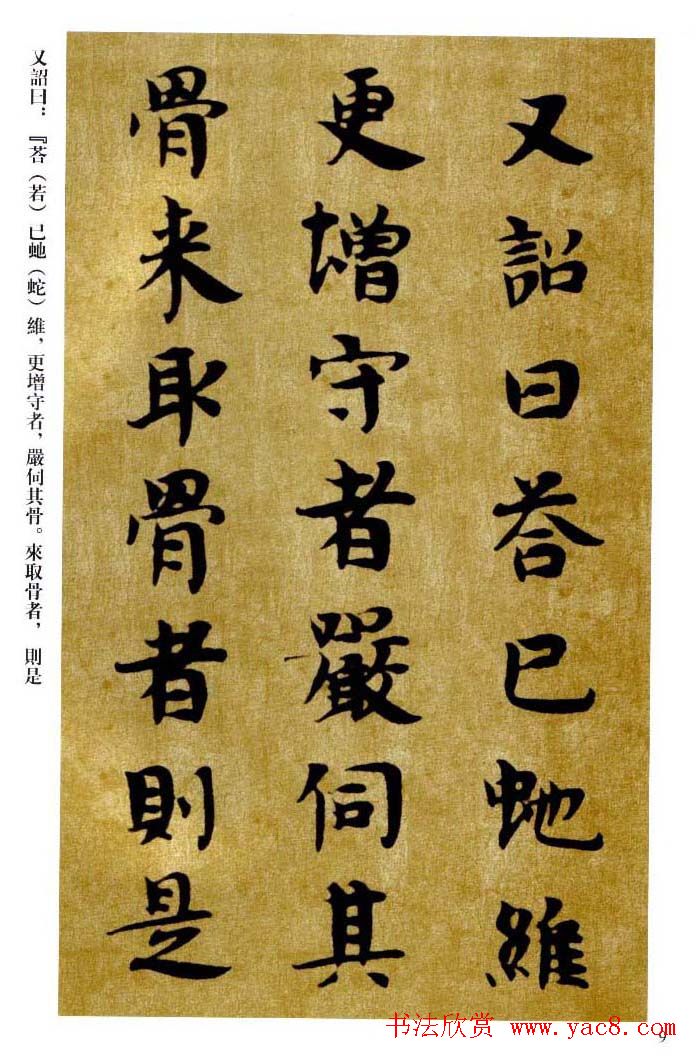 又詔曰荅已虵維
更增守者嚴伺其
骨来取骨者則是
又詔曰：『荅（若）已虵（蛇）維，更增守者，嚴伺其骨。來取骨者，則是
书法欣赏 www.yac8.com
9